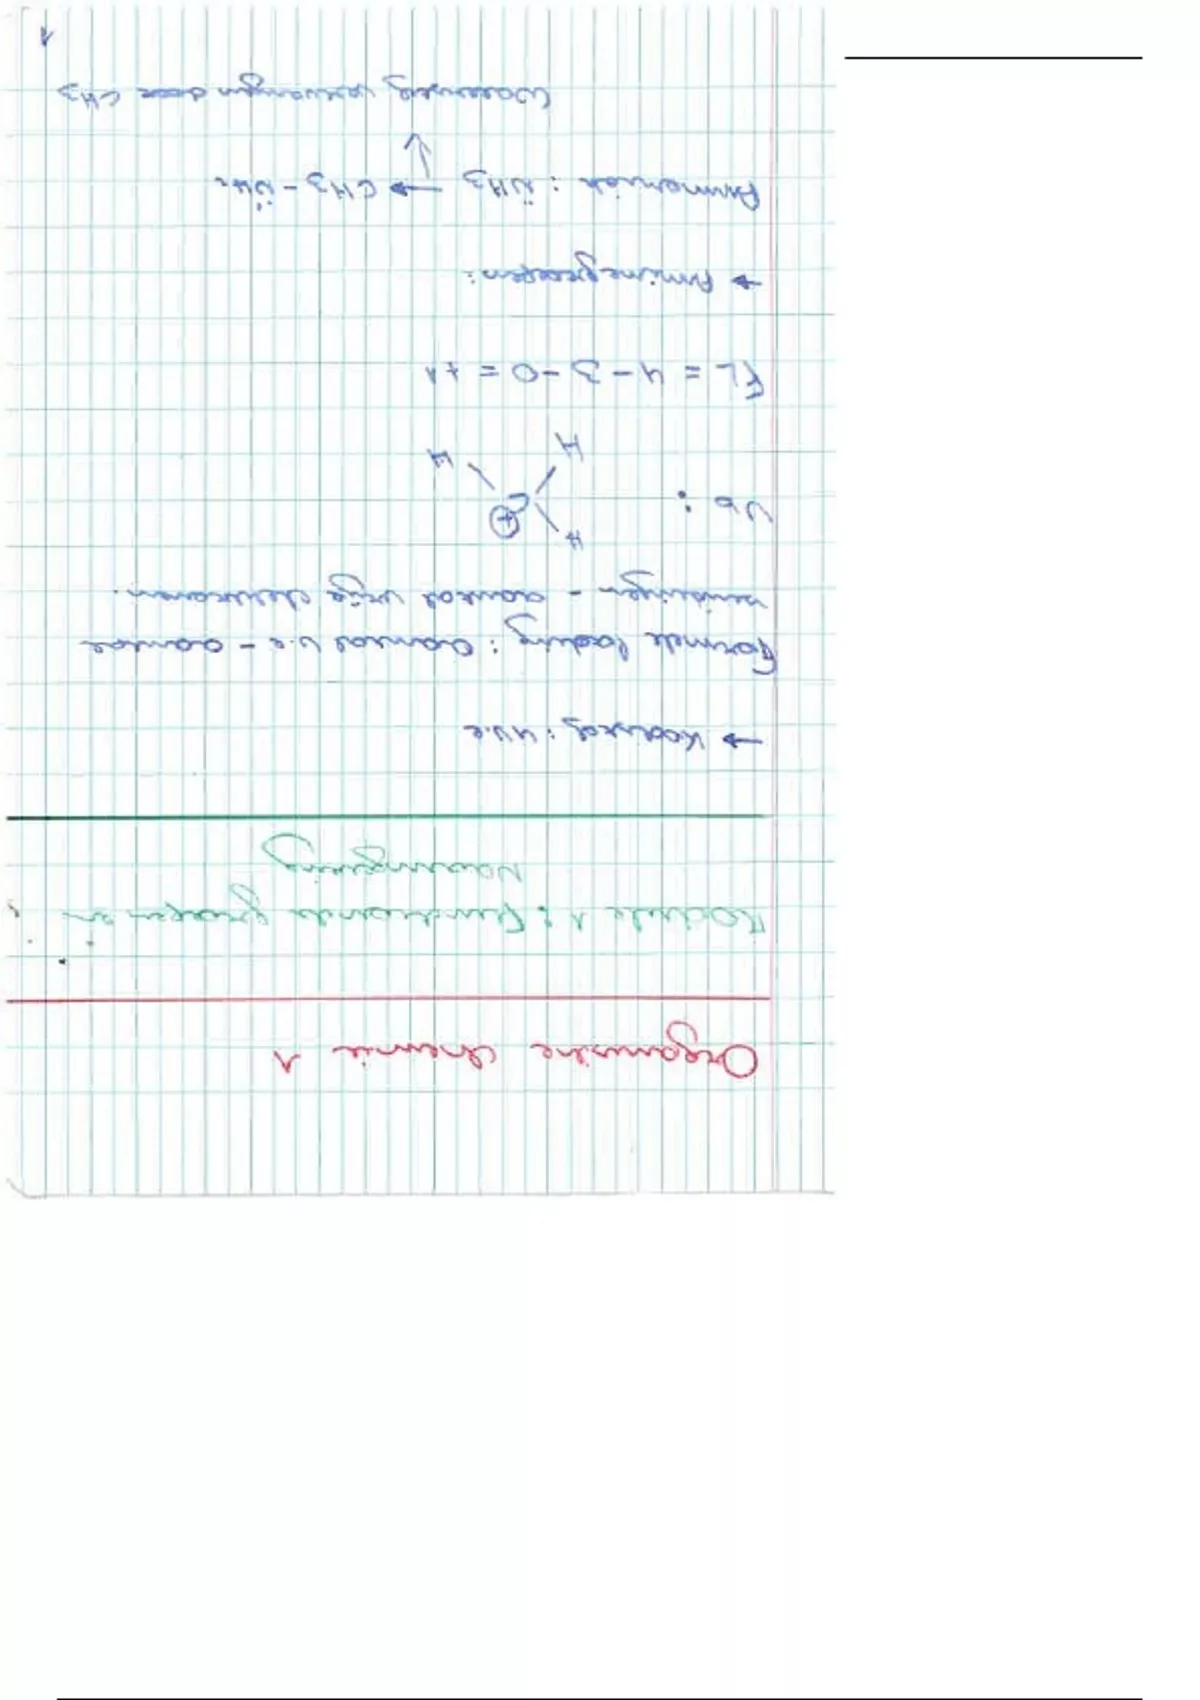 Organische chemie 1
Module 1: Functionele groepen en
naamgeving
→ Koolstof: 4 v.e
Formele lading: Aantal v.e - aantal
bindingen - aantal vrije elektronen.
Vb:
H
⊕
C
H H
FL = 4 - 3 - 0 = +1
→ Aminegroepen:
Ammoniak: N̈H3 → CH3 - N̈H2
Waterstof vervangen door CH3
1